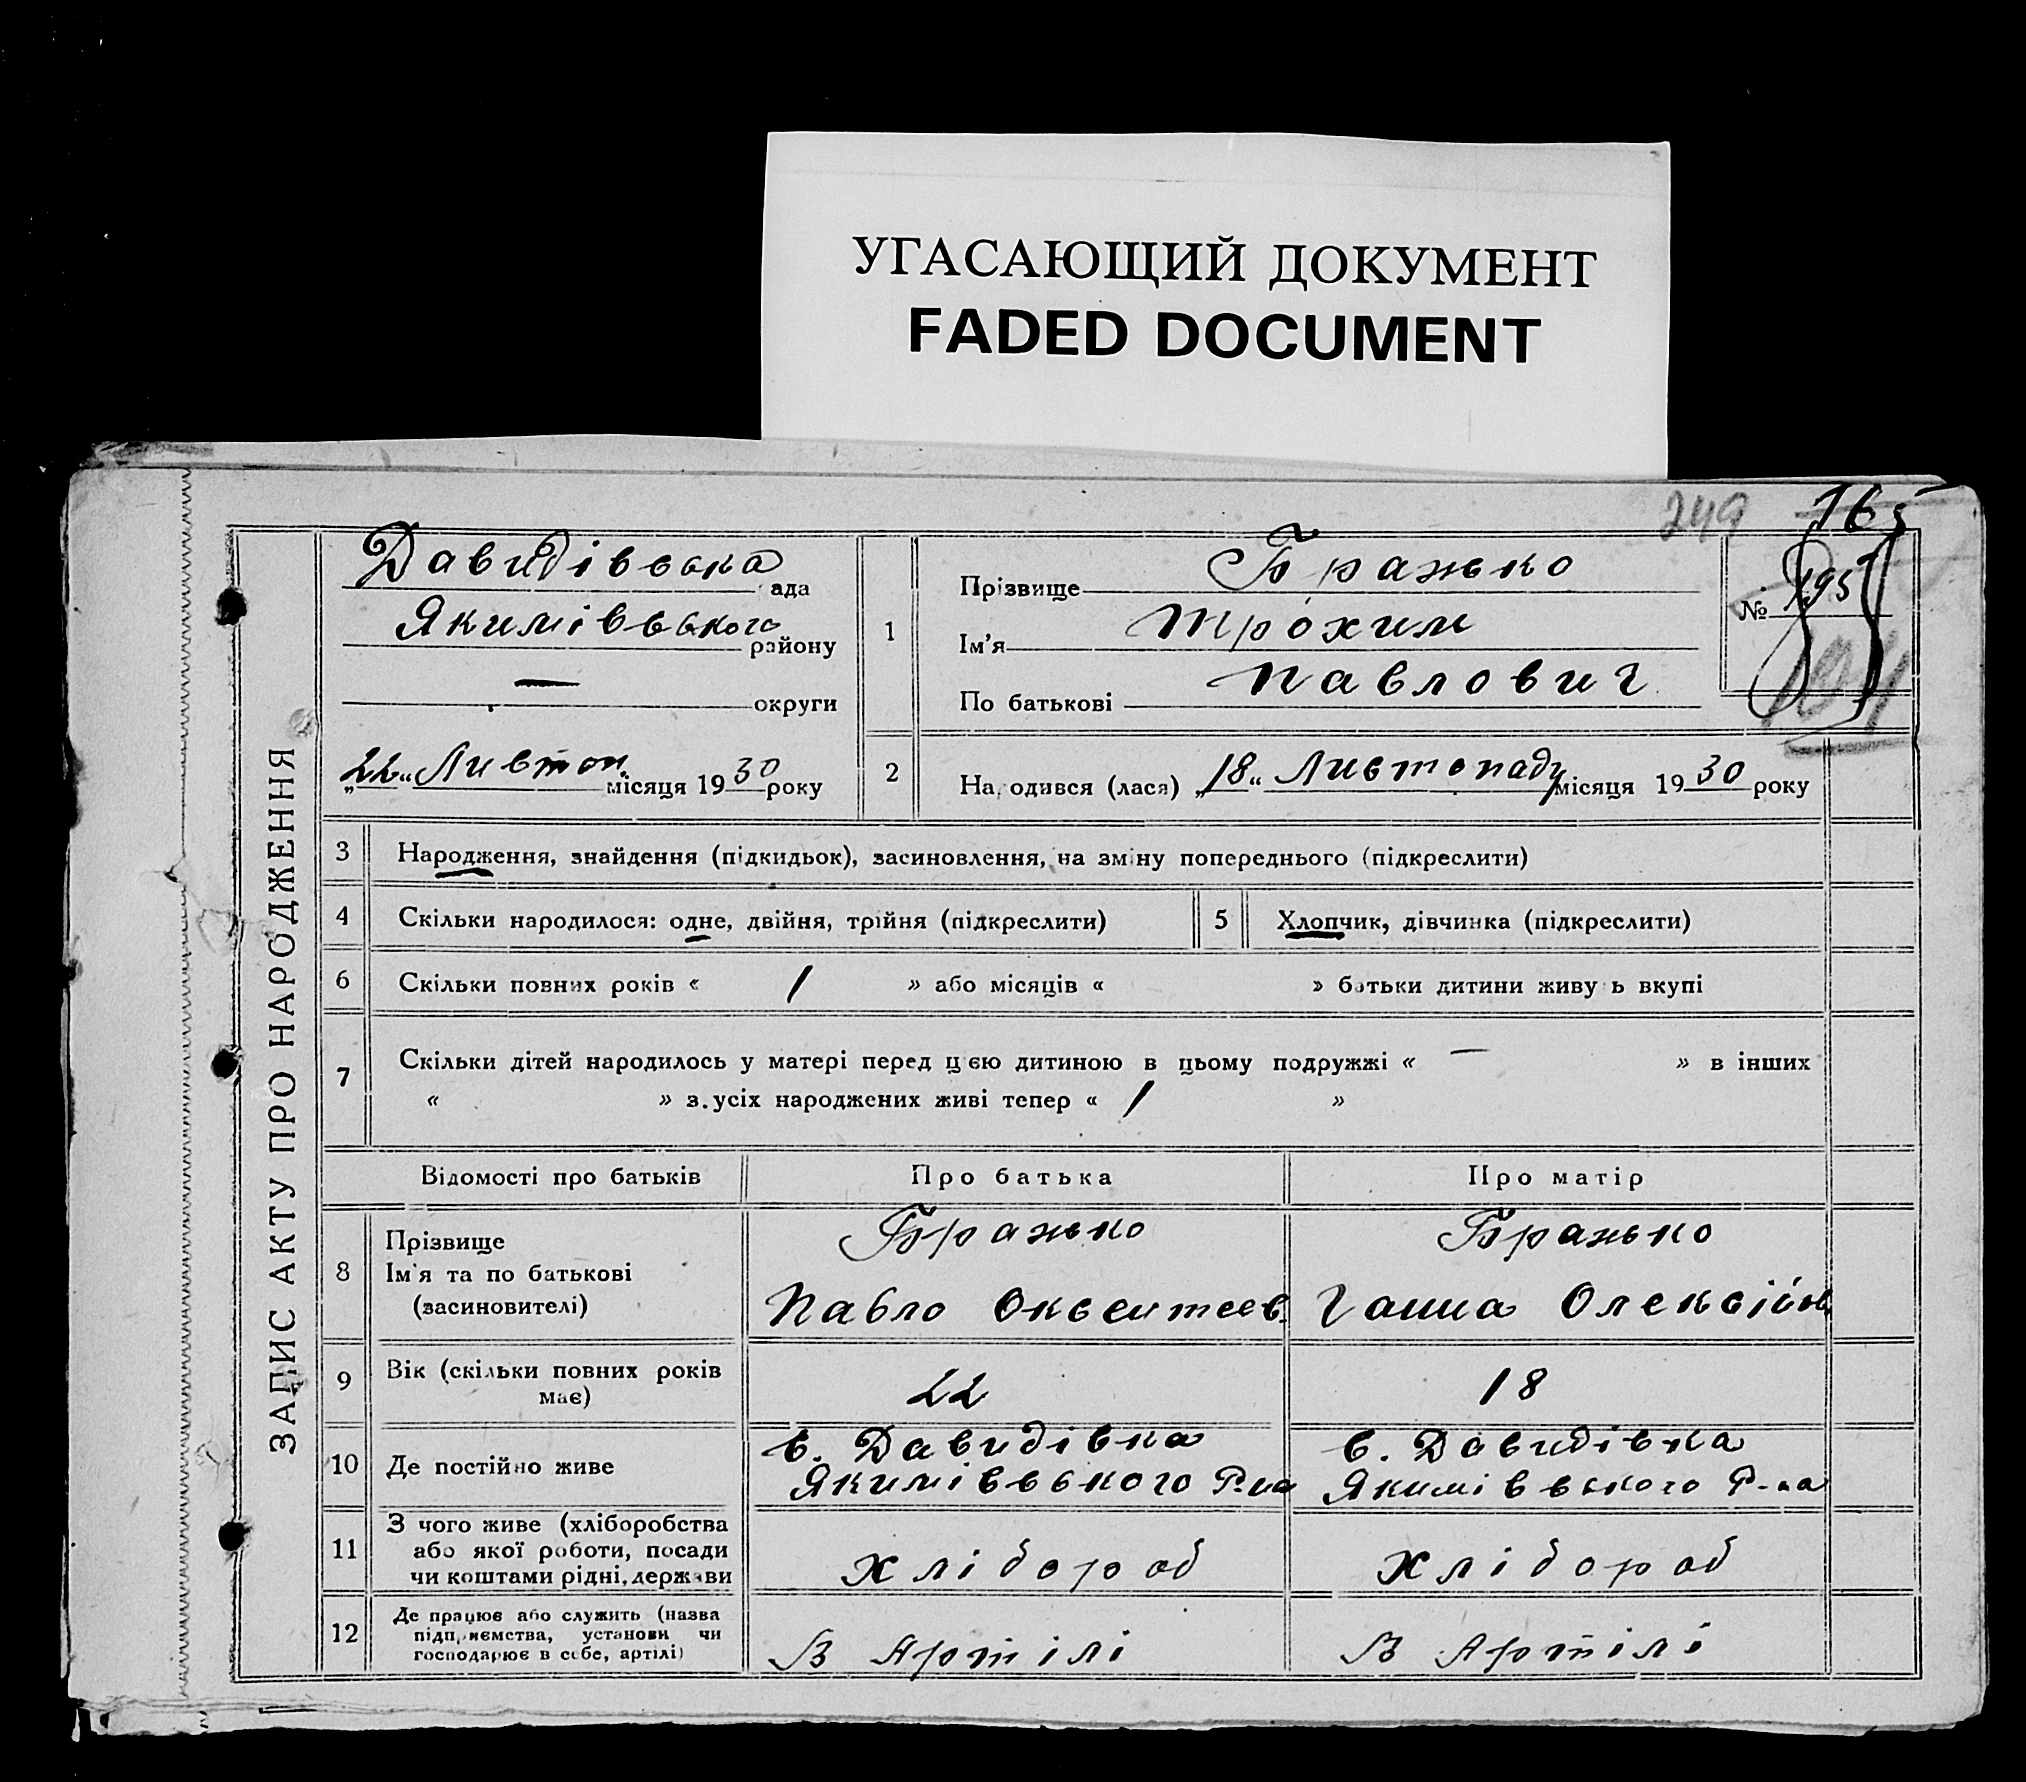 УГАСАЮЩИЙ ДОКУМЕНТ
FADED DOCUMENT
249 165
ЗАПИС АКТУ ПРО НАРОДЖЕННЯ
Давидівська рада
Якимівського району
— округи
„22“ Листоп. місяця 1930 року
1 Прізвище Бражько
Ім’я Трохим
По батькові Павлович
№ 195
194
2 Народився (лася) „18“ Листопаду місяця 1930 року
3 Народження, знайдення (підкидьок), засиновлення, на зміну попереднього (підкреслити)
4 Скільки народилося: одне, двійня, трійня (підкреслити) 5 Хлопчик, дівчинка (підкреслити)
6 Скільки повних років « 1 » або місяців « » батьки дитини живуть вкупі
7 Скільки дітей народилось у матері перед цією дитиною в цьому подружжі « — » в інших
« » з усіх народжених живі тепер « 1 »
Відомості про батьків Про батька Про матір
8 Прізвище Бражько Бражько
Ім’я та по батькові
(засиновителі) Павло Оксентеев. Ганна Олексійов.
9 Вік (скільки повних років
має) 22 18
10 Де постійно живе с. Давидівка с. Давидівка
Якимівського Р-на Якимівського Р-на
11 З чого живе (хліборобства
або якої роботи, посади
чи коштами рідні, держави Хлібороб Хлібороб
12 Де працює або служить (назва
підприємства, установи чи
господарює в себе, артілі) В Артілі В Артілі